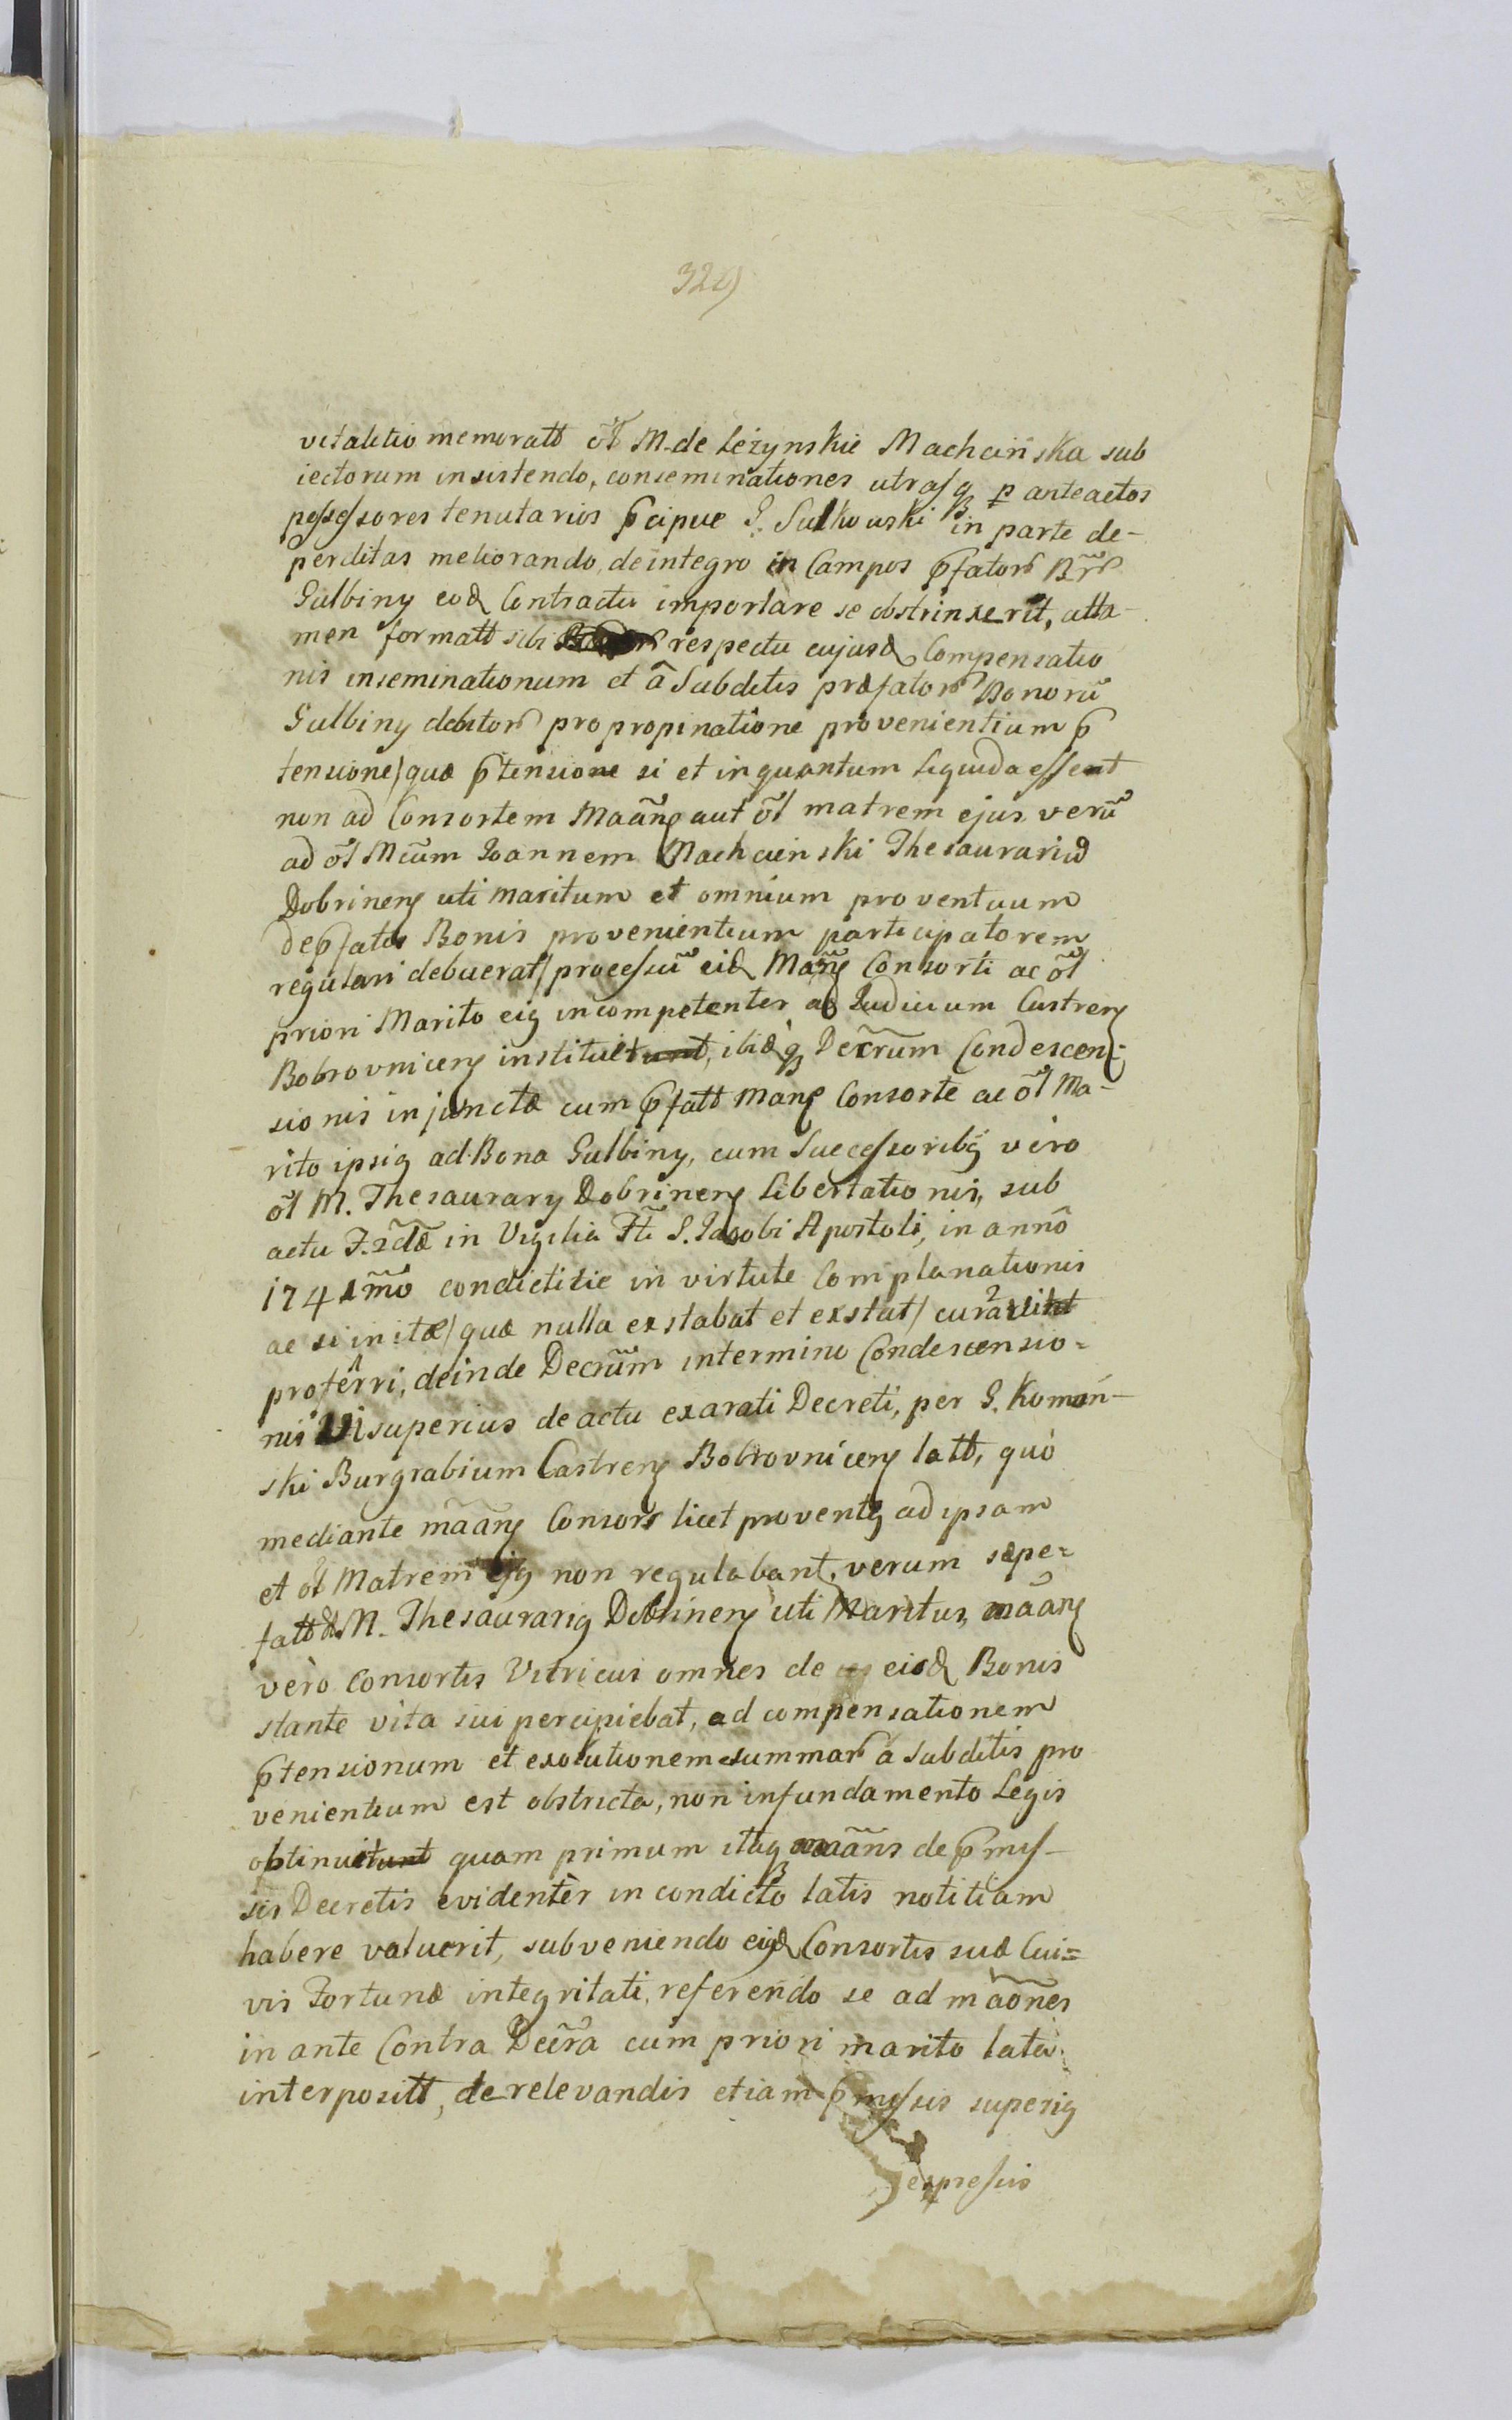 329
vitalitio memoratt õl M. de Leżynskie Machcińska sub
iectorum insistendo, conseminationes utrasq p anteactos
possessores tenutarios p̃cipue G. Sulkowski in parte de-
perditas meliorando, de integro in Campos p̃fator Bñr
Gulbiny eod Contractu importare se obstrinxerit, atta-
men formatt sibi respectu cujusd Compensatio
nis inseminationum et â Subditis præfator Bonorũ
Gulbiny debitor pro propinatione provenientium p̃
tensione/ quæ p̃tensione si et inquantum liquida essent
non ad Consortem Maãng aut õl matrem ejus verũ
ad õl Mcũm Joannem Machcienski Thesaurariũ
Dobrineng uti maritum et omnium proventuum
de p̃fatis Bonis provenientium participatorem
regulari debuerat/ processũ eid Mañg Consorti ac õl
priori Marito eig incompetenter ad Judicium Castreng
Bobrovniceng instituit, ibidq Decr̃um Condescen-
sionis injunctæ cum p̃fatt Mang Consorte ac õl Ma-
rito ipsig ad Bona Gulbiny, cum Successoribg vèro
õl M. Thesaurary Dobrineng Libertationis, sub
actu F. 2dã in Vigilia Ftĩ S. Jacobi Apostoli, in annô
1741mõ condictitie in virtute Complanationis
ac si initæ/ quæ nulla exstabat et exstat/ curavit
proferri, deinde Decrũm in termino Condescensio-
nis Vi superius de actu exarati Decreti, per G. Komiń-
ski Burgrabium Castreng Bobrovniceng latt, quò
mediante mãang Consors licet proventg ad ipsam
et õl Matrem ejg non regulabant, verum sæpe-
fatt õl M. Thesaurarig Dobrineng uti Maritus, mãang
vèro Consortis Vitricus omnes de eisd Bonis
stante vita sui percipiebat, ad compensationem
p̃tensionum et exolutionem summar â subditis pro
venientium est obstricta, non in fundamento Legis
obtinuit quam primum itaq mãans de p̃mis-
sis Decretis evidentèr in condicto latis notitiam
habere valuerit, subveniendo eigd Consortis suæ Cui-
vis Fortunæ integritati, referendo se ad mãones
in ante Contra Decr̃a cum priori marito lata
interpositt, de relevandis etiam p̃missis superig
expressis